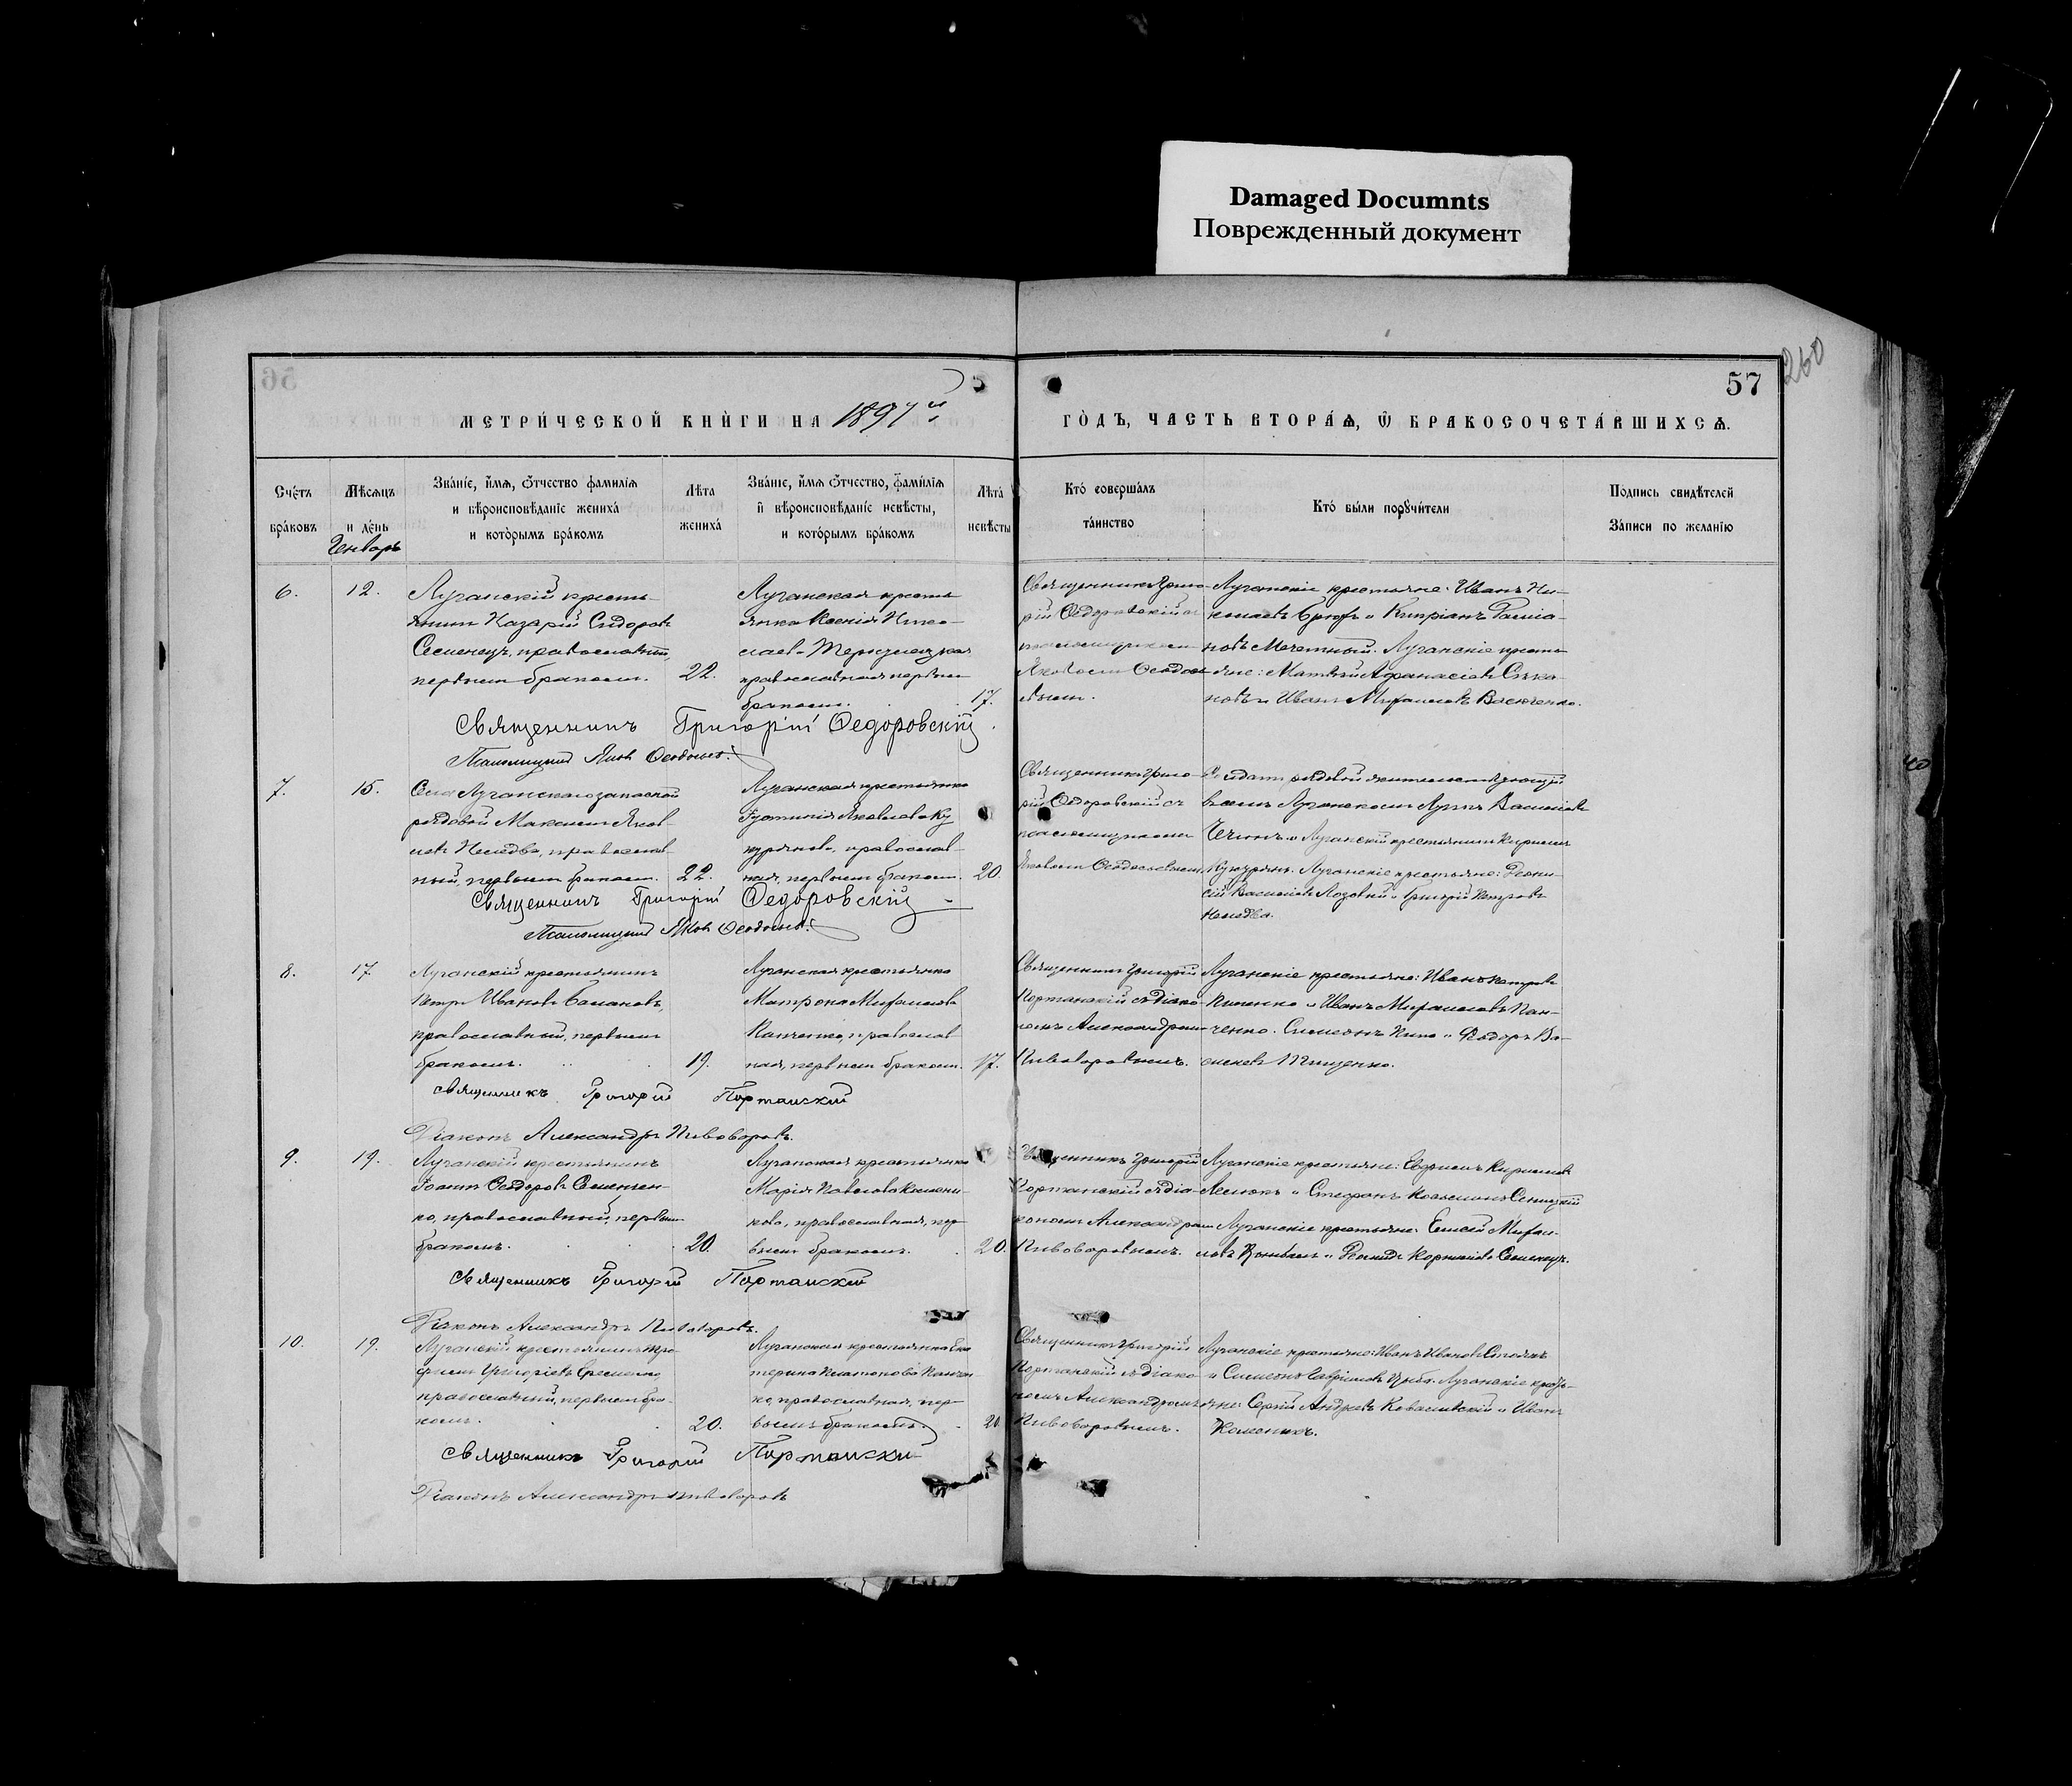 Damaged Documnts
Поврежденный документ
260
57
МЕТРИ́ЧЕСКОЙ КНИ́ГИ НА 1897 й
ГО́ДЪ, ЧАСТЬ ВТОРА́Ѧ, Ѿ БРАКОСОЧЕТА́ВШИХСѦ.
Сче́тъ бра́ковъ
Мѣ́сѧцъ и де́нь
Генварь
Зва́нїе, и́мѧ, ѻ́тчество фами́лїѧ
и вѣроисповѣ́данїе жениха́
и кото́рымъ бра́комъ
Лѣ́та жениха́
Зва́нїе, и́мѧ ѻ́тчество, фами́лїѧ
и вѣроисповѣ́данїе невѣ́сты,
и кото́рымъ бра́комъ
Лѣ́та невѣ́сты
Кто́ соверша́лъ
та́инство
Кто́ бы́ли порꙋчи́тели
По́дпись свидѣ́телей
За́писи по жела́нїю
6.
12.
Луганскій кресть-
янинъ Назарій Сидоровъ
Семенецъ, православный,
первымъ бракомъ.
22.
Луганская кресть
янка Ксенія Нико-
лаева
православная первымъ
бракомъ.
17.
Священникъ Григо-
рій Ѳедоровскій съ
псаломщикомъ
Яковомъ Ѳеодось
евымъ.
Луганскіе крестьяне: Иванъ Ни-
колаевъ и Кипріанъ
новъ Мечетный. Луганскіе кресть
яне: Матвей Аѳанасіевъ
новъ и Иванъ Михаиловъ Васюченко.
Священникъ Григорій Ѳедоровскій
Псаломщикъ Яковъ Ѳеодосьев.
7.
15.
Села Луганскаго запасной
рядовой Максимъ Яков-
левъ Неледва, православ-
ный, первымъ бракомъ.
22.
Луганская крестьянка
Іустинія Яковлева Ку
курянова, православ-
ная, первымъ бракомъ.
20.
Священникъ Григо-
рій Ѳедоровскій съ
псаломщикомъ
Яковомъ Ѳеодосьевымъ.
рядовой жительствующій
въ селѣ Луганскомъ Лупъ Васильевъ
и Луганскій крестьянинъ Кириллъ
Луганскіе крестьяне: Діони-
сій Васильевъ Лозовый и Григорій Петровъ
Неледва.
Священникъ Григорій Ѳедоровскій
Псаломщикъ Яковъ Ѳеодосьев.
8.
17.
Луганскій крестьянинъ
Петръ Ивановъ Балановъ,
православный, первымъ
бракомъ.
19.
Луганская крестьянка
Матрона Михаилова
Панченко, православ
ная, первымъ бракомъ.
17.
Священникъ Григорій
Портанскій съ діако-
номъ Александромъ
Пивоваровымъ.
Луганскіе крестьяне: Иванъ Петровъ
и Иванъ Михаиловъ Пан-
ченко. Симеонъ и Ѳедоръ Ва-
сильевъ Тищенко.
Священникъ Григорій Портанскій
Діаконъ Александръ Пивоваровъ.
9.
19.
Луганскій крестьянинъ
Іоаннъ Ѳеодоровъ Семенчен-
ко, православный, первымъ
бракомъ.
20.
Луганская крестьянка
Марія Павлова Климен-
кова, православная, пер
вымъ бракомъ.
20.
Священникъ Григорій
Портанскій съ діа-
кономъ Александромъ
Пивоваровымъ.
Луганскіе крестьяне: Кирилловъ
и Стефанъ
Луганскіе крестьяне: Елисей Михаи-
ловъ и Корнилievъ Семенецъ.
Священникъ Григорій Портанскій
Діаконъ Александръ Пивоваровъ.
10.
19.
Луганскій крестьянинъ Тро-
фимъ Григоріевъ Еременко,
православный, первымъ бра-
комъ.
20.
Луганская крестьянка Ека
терина Платонова Панчен-
ко, православная, пер-
вымъ бракомъ.
20
Священникъ Григорій
Портанскій съ діако-
номъ Александромъ
Пивоваровымъ.
Луганскіе крестьяне: Иванъ Ивановъ Стоянъ
и Симеонъ Гавриловъ Цыба. Луганскіе кресть-
яне: Сергій Андреевъ Ковалевскій и Иванъ
Священникъ Григорій Портанскій
Діаконъ Александръ Пивоваровъ